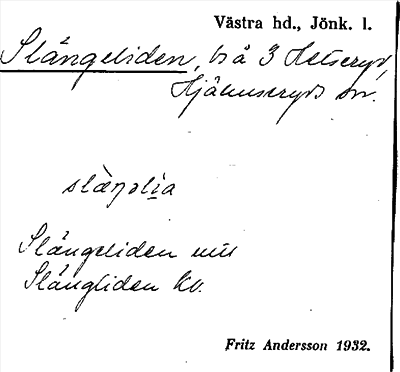 Västra hd., Jönk. l.
Slängeliden, bå 3 Hetseryd,
Hjälmseryds sn.
slæ̀ŋəlia
Slängeliden
Slängliden Kv.
Fritz Andersson 1932.